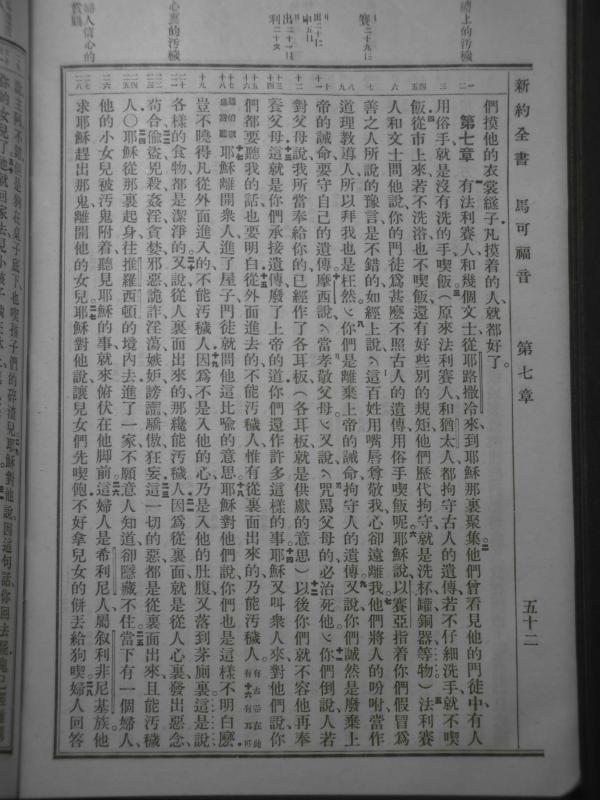 新約全書 馬可福音 第七章 五十二
們摸他的衣裳繸子凡摸着的人就都好了。
第七章 有法利賽人和幾個文士從耶路撒冷來到耶穌那裏聚集他們曾看見他的門徒中有人
用俗手就是沒有洗的手喫飯(原來法利賽人和猶太人都拘守古人的遺傳若不仔細洗手就不喫
飯從市上來若不洗浴也不喫飯還有好些別的規矩他們歷代拘守就是洗杯罐銅器等物)法利賽
人和文士問他說你的門徒爲甚麽不照古人的遺傳用俗手喫飯呢耶穌說以賽亞指着你們假冒爲
善之人所說的豫言是不錯的如經上說、這百姓用嘴唇尊敬我心卻遠離我他們將人的吩咐當作
道理教導人所以拜我也是枉然、你們是離棄上帝的誡命拘守人的遺傳又說你們誠然是廢棄上
帝的誡命要守自己的遺傳摩西說、當孝敬父母、又說、咒罵父母的必治死他、你們倒說人若
對父母說我所當奉給你的已經作了各耳板(各耳板就是供獻的意思)以後你們就不容他再奉
養父母這就是你們承接遺傳廢了上帝的道你們還作許多這樣的事耶穌又叫衆人來對他們說你
們都要聽我的話也要明白從外面進去的不能汚穢人惟有從裏面出來的乃能汚穢人
耶穌離開衆人進了屋子門徒就問他這比喻的意思耶穌對他們說你們也是這樣不明白麽
豈不曉得凡從外面進入的不能汚穢人因爲不是入他的心乃是入他的肚腹又落到茅廁裏這是說
各樣的食物都是潔淨的又說從人裏面出來的那纔能汚穢人因爲從裏面就是從人心裏發出惡念
苟合偷盜兇殺姦淫貪婪邪惡詭詐淫蕩嫉妒謗讟驕傲狂妄這一切的惡都是從裏面出來且能汚穢
人○耶穌從那裏起身往推羅西頓的境內去進了一家不願意人知道卻隱藏不住當下有一個婦人
他的小女兒被汚鬼附着聽見耶穌的事就來俯伏在他腳前這婦人是希利尼人屬叙利非尼基族他
求耶穌趕出那鬼離開他的女兒耶穌對他說讓兒女們先喫飽不好拿兒女的餅丟給狗喫婦人回答